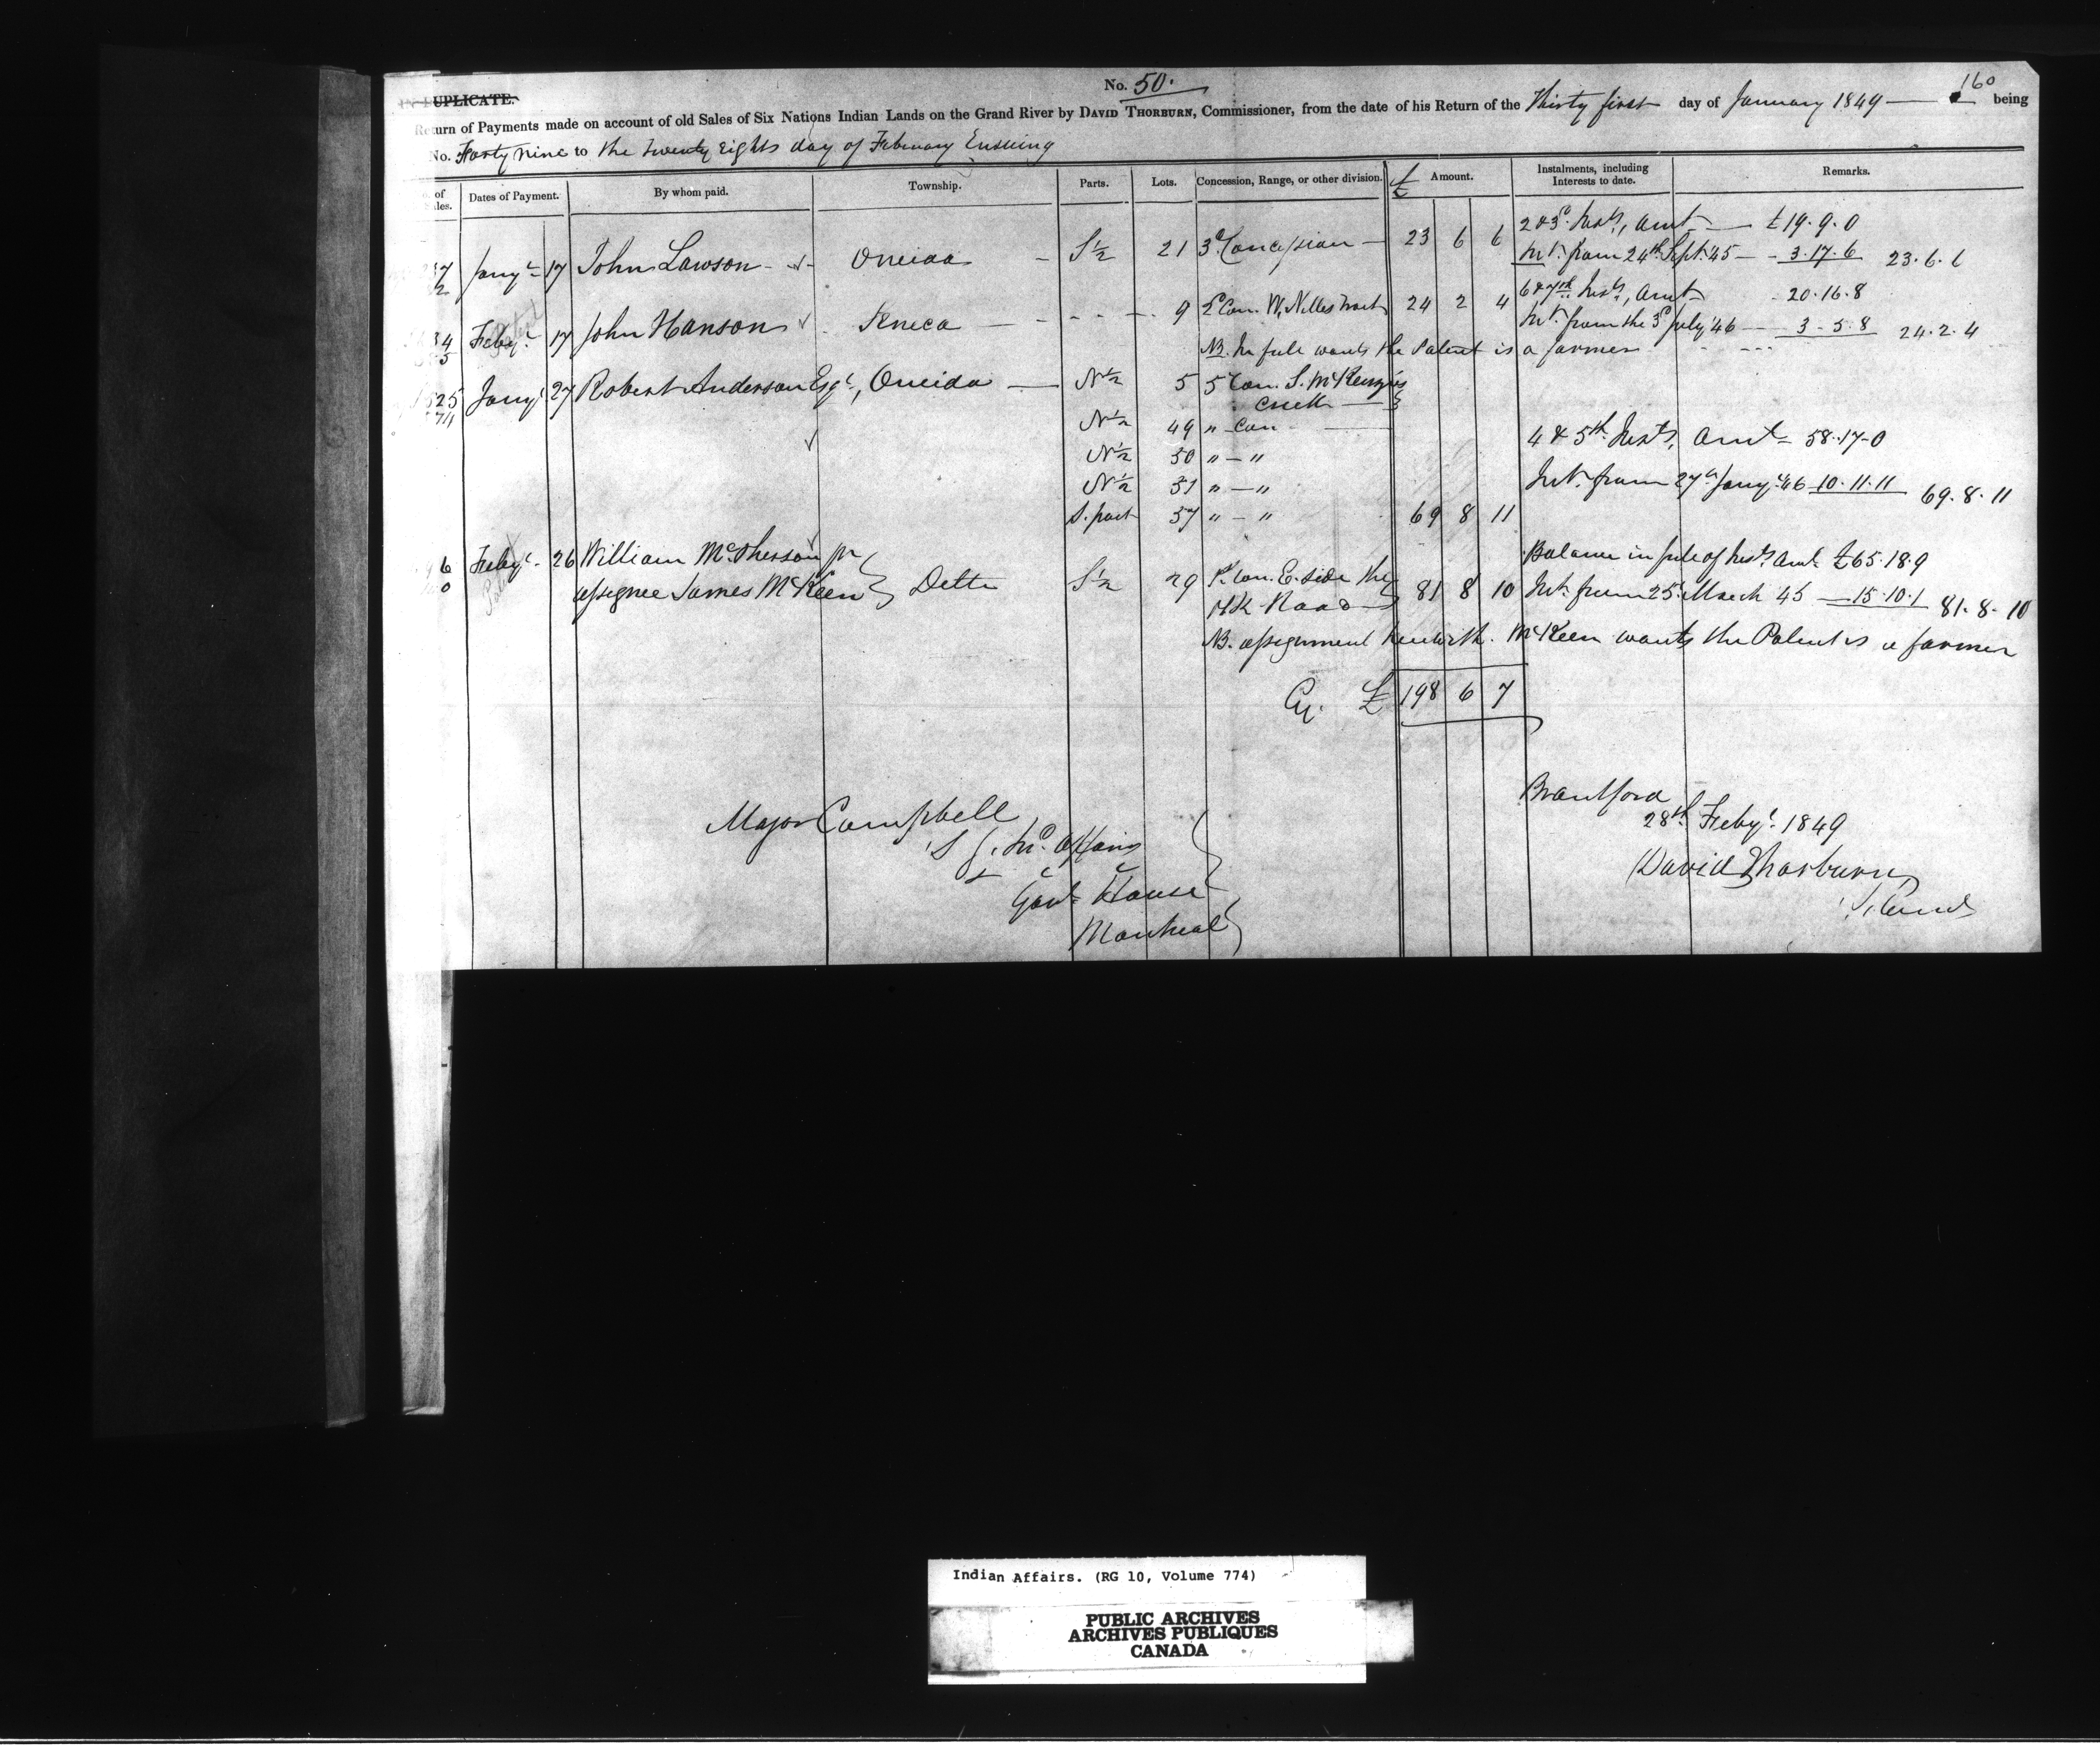 No. 50.
160
UPLICATE.
Return of Payments made on account of old Sales of Six Nations Indian Lands on the Grand River by DAVID THORBURN, Commissioner, from the date of his Return of the Thirty first day of January 1849 — being
No. Forty nine to the twenty Eights day of February Ensuing
of ales. Dates of Payment. By whom paid. Township. Parts. Lots. Concession, Range, or other division. £ Amount. Instalments, including Interests to date. Remarks.
2 & 3d. Insts, amt — £19.9.0
Jany 17 John Lawson Oneida S½ 21 3d Concession — 23 6 6 Int. from 24th Sept. 45 — 3.17.6 23.6.6
6 & 7th Insts, Amt — 20.16.8
Feby. 17 John Hanson Seneca — 9 2d Con. W. Nelles tract 24 2 4 Int. from the 3d July 46 — 3-5.8 24.2.4
NB. In full wants the Patent is a farmer
25 Jany 27 Robert Anderson Esqr, Oneida — N½ 5 5 Con. S. McKenzies
creek
N½ 49 " Con
4 & 5th Insts, Amt = 58.17-0
N½ 50 " — "
N½ 51 " — " Int. from 27th Jany. 46 10.11.11 69.8.11
S. part 57 " — " 69 8 11
6 Feby. 26 William McPherson pr Balance in full of Insts Amt £65.18.9
0 assignee James McKeen } Delta S½ 29 1st Con. E. side the
HK Road 81 8 10 Int. from 25 March 45 — 15.10.1 81.8.10
NB. assignment herewith. McKeen wants the Patent is a farmer
Cy. £ 198 6 7
Brantford
28th Feby. 1849
Major Campbell
S G. In. Affairs
David Thorburn
Govt House
Montreal
Indian Affairs. (RG 10, Volume 774)
PUBLIC ARCHIVES
ARCHIVES PUBLIQUES
CANADA